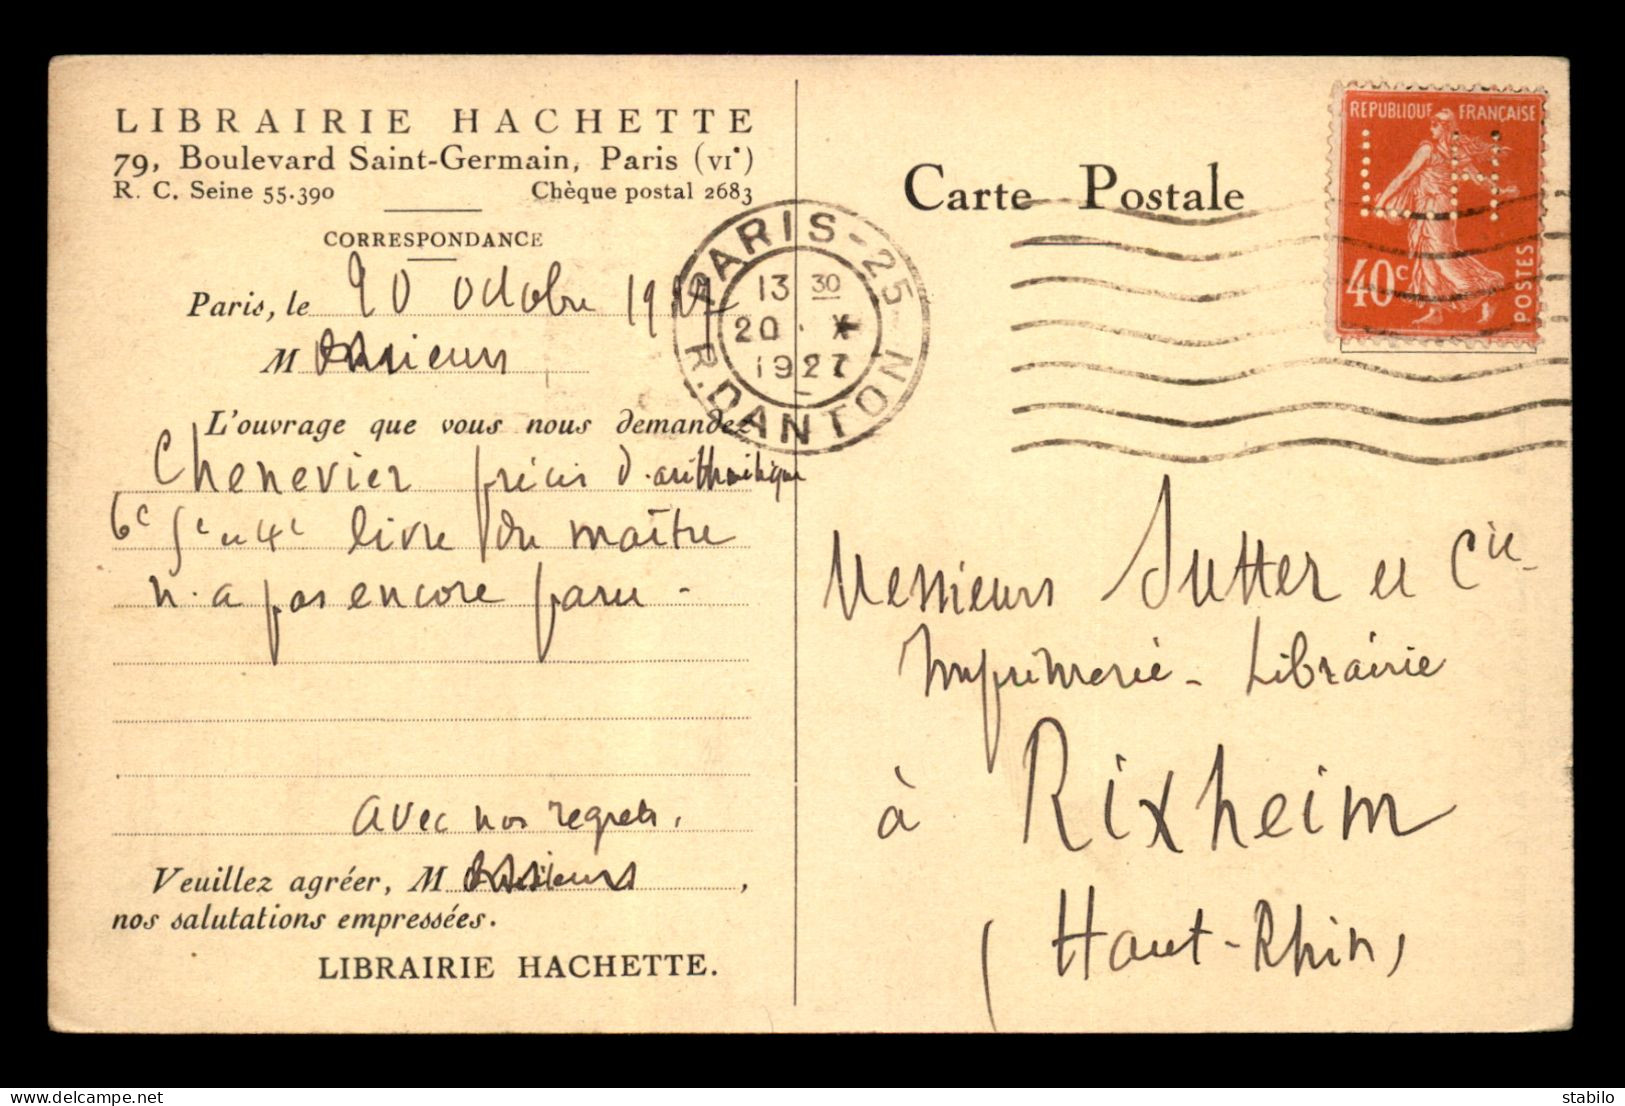 LIBRAIRIE HACHETTE
79, Boulevard Saint-Germain, Paris (VIᵉ)
R. C. Seine 55.390 Chèque postal 2683
CORRESPONDANCE
Paris, le 20 octobre 1927
Messieurs
L'ouvrage que vous nous demandez
Chenevier précis d'arithmétique
6e 5e et 4e livre du maître
n'a pas encore paru -
avec nos regrets.
Veuillez agréer, Messieurs,
nos salutations empressées.
LIBRAIRIE HACHETTE.
PARIS-25 R. DANTON
13 30
20 · X
1927
Carte Postale
REPUBLIQUE FRANÇAISE
LH
40c
POSTES
Messieurs Sutter et Cie
Imprimerie - Librairie
à Rixheim
(Haut-Rhin)
delcampe.net
stabilo